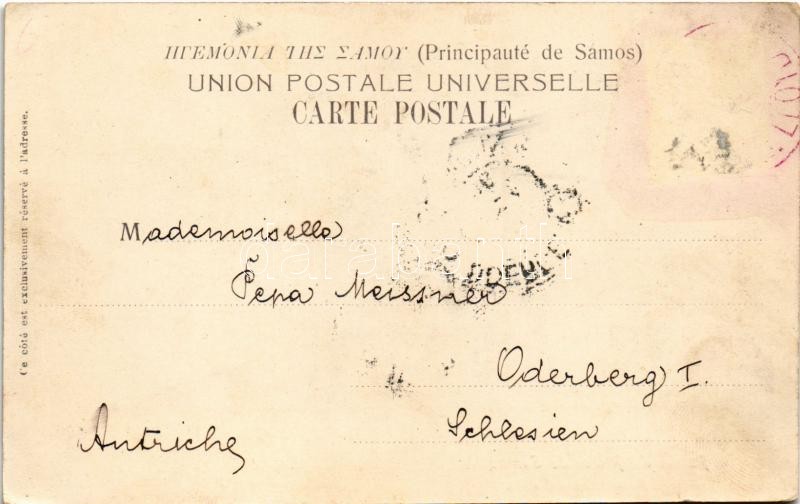 ΗΓΕΜΟΝΙΑ ΤΗΣ ΣΑΜΟΥ (Principauté de Samos)
UNION POSTALE UNIVERSELLE
CARTE POSTALE
Ce côté est exclusivement réservé à l'adresse.
Mademoiselle
Pepa Meissner
Oderberg I.
Schlesien
Autriche
darabanth